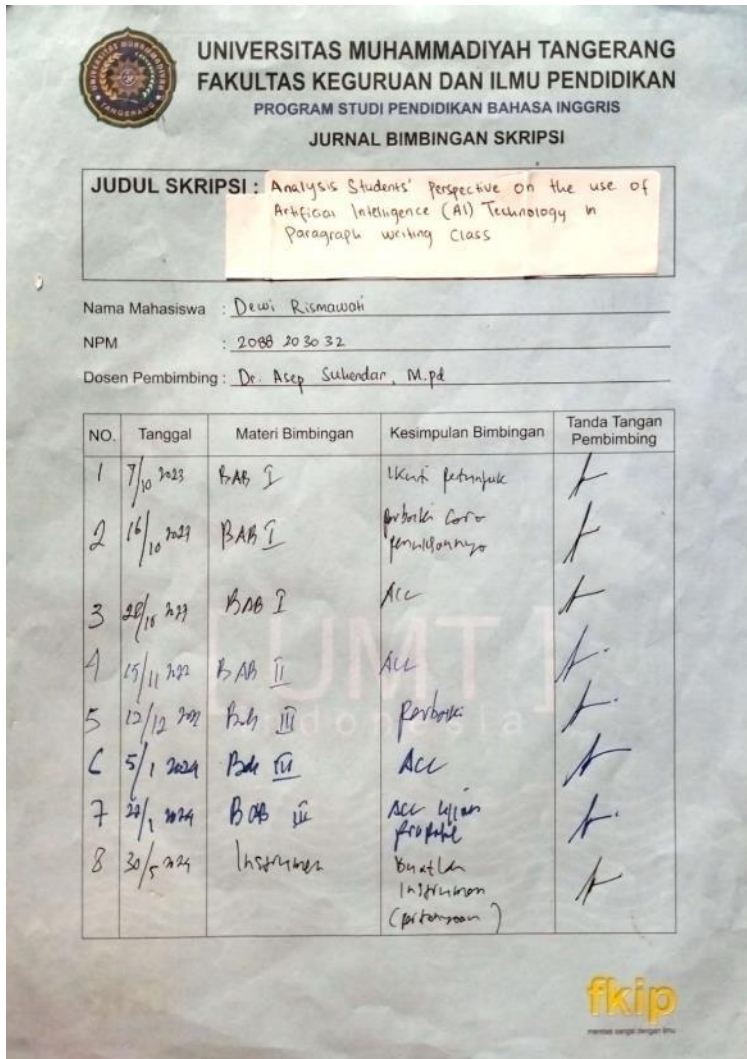 UNIVERSITAS MUHAMMADIYAH TANGERANG
FAKULTAS KEGURUAN DAN ILMU PENDIDIKAN
PROGRAM STUDI PENDIDIKAN BAHASA INGGRIS
JURNAL BIMBINGAN SKRIPSI
JUDUL SKRIPSI : Analysis Students' Perspective on the use of
Artificial Intelligence (AI) Technology in
Paragraph writing Class
Nama Mahasiswa : Dewi Rismawati
NPM : 2088 203032
Dosen Pembimbing : Dr. Asep Suhendar, M.pd
NO. Tanggal Materi Bimbingan Kesimpulan Bimbingan Tanda Tangan Pembimbing
1 7/10 2023 BAB I Ikuti petunjuk
2 16/10 2023 BAB I perbaiki cara
penulisannya
3 /10 BAB I Acc
4 15/11 BAB II Acc
5 12/12 Bab III Perbaiki
6 5/1 2024 Bab III Acc
7 /1 2024 BAB III Acc Ujian
proposal
8 30/5 2024 Instrumen Buatlah
Instrumen
(pertanyaan)
[ UMT ]
Indonesia
fkip